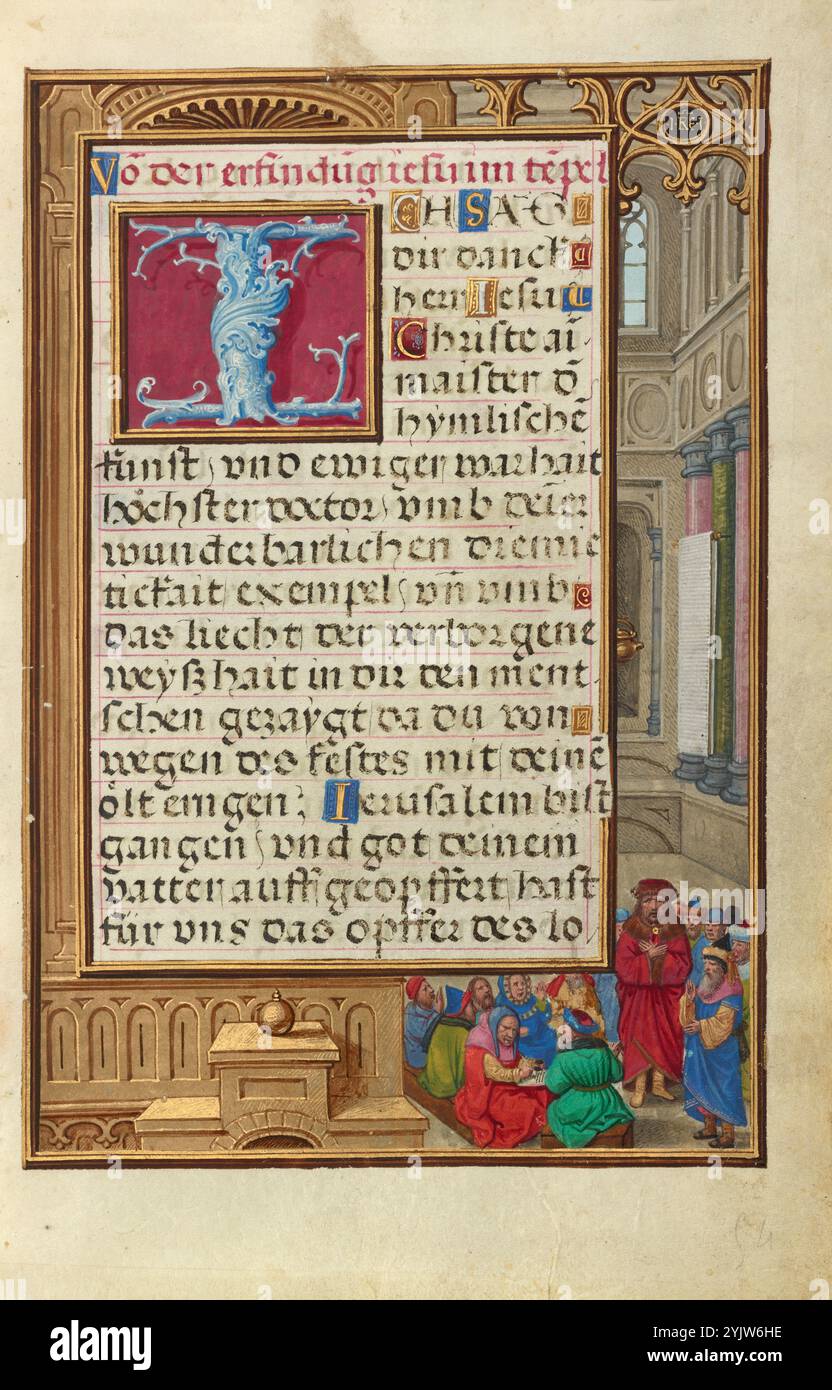 Vō der erfindūg iesu im tēpel
I CH SAG
dir danck
herr Iesu
Christe ai
maister d̄
hymlischē
kunst, vnd ewiger warhait
höchster doctor, vmb deīer
wunderbarlichen diemie
tickait exempel, vn̄ vmb
das liecht der verborgene
weyszhait in dir den ment
schen gezaygt da du von
wegen des festes mit deinē
öltern gen, Ierusalem bist
gangen, vnd got deinem
vatter auff geopffert hast
für vns das opffer des lo
54
alamy
Image ID: 2YJW6HE
www.alamy.com